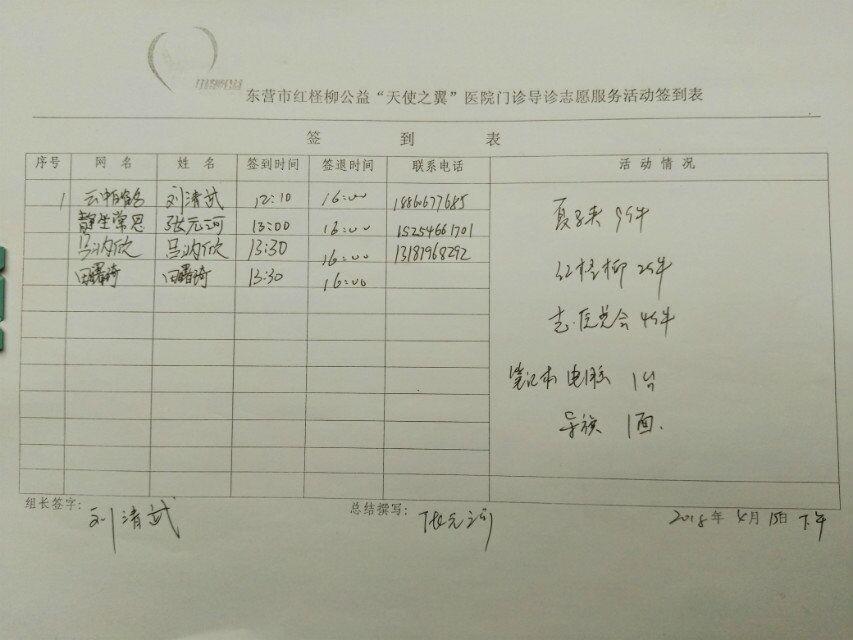 红柽柳公益
东营市红柽柳公益“天使之翼”医院门诊导诊志愿服务活动签到表
签 到 表
序号 网 名 姓 名 签到时间 签退时间 联系电话 活动情况
1 刘清武 12:10 16:00 1886677685
静生常思 张元河 13:00 16:00 15254661701
吕汭欣 吕汭欣 13:30 16:00 13181968292
田曙琦 田曙琦 13:30 16:00
夏马夹 9件
红柽柳 2件
志 4件
笔记本电脑 1台
导旗 1面.
组长签字: 刘清武 总结撰写: 张元河 2018年 4月 15日 下午